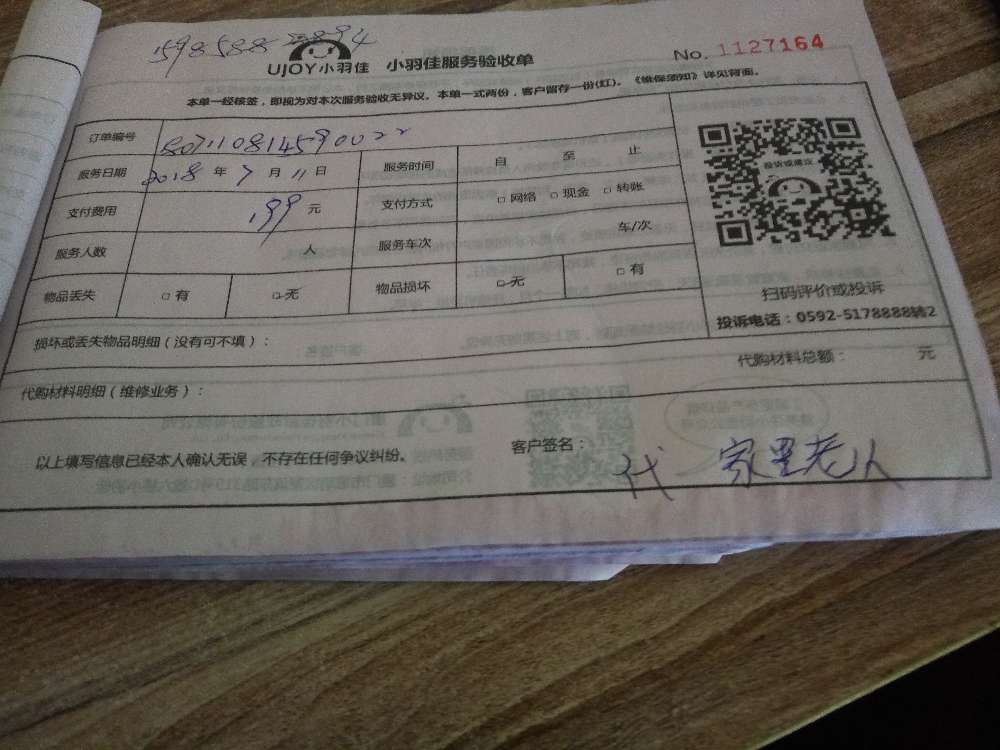 No. 1127164
UJOY小羽佳 小羽佳服务验收单
本单一经核签，即视为对本次服务验收无异议。本单一式两份，客户留存一份(红)。《维保须知》详见背面。
订单编号
服务日期 2018 年 7 月 11 日 服务时间 自 至 止
支付费用 199 元 支付方式 □ 网络 □ 现金 □ 转账
服务人数 人 服务车次 车/次
物品丢失 □ 有 □ 无 物品损坏 □ 无 □ 有
投诉或建议
扫码评价或投诉
投诉电话：0592-5178888转2
损坏或丢失物品明细（没有可不填）：
代购材料明细（维修业务）： 代购材料总额： 元
以上填写信息已经本人确认无误，不存在任何争议纠纷。 客户签名： 代 家里老人